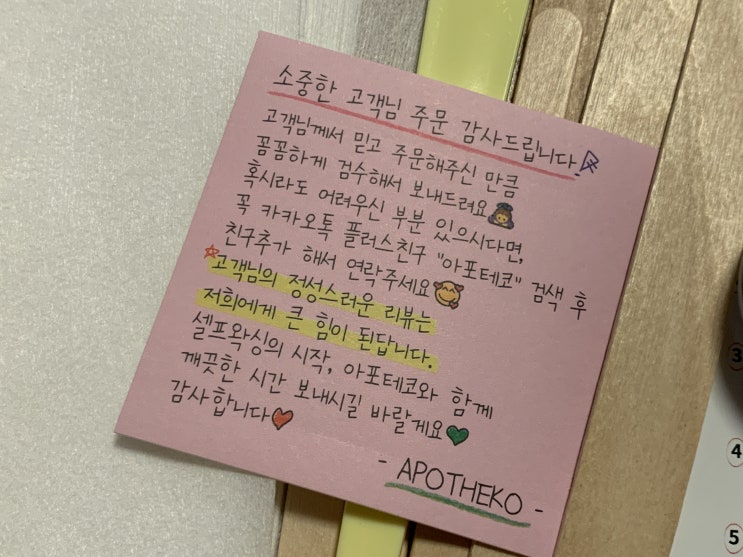 소중한 고객님 주문 감사드립니다.
고객님께서 믿고 주문해주신 만큼
꼼꼼하게 검수해서 보내드려요
혹시라도 어려우신 부분 있으시다면,
꼭 카카오톡 플러스친구 "아포테코" 검색 후
친구추가 해서 연락주세요
고객님의 정성스러운 리뷰는
저희에게 큰 힘이 된답니다.
셀프왁싱의 시작, 아포테코와 함께
깨끗한 시간 보내시길 바랄게요
감사합니다
- APOTHEKO -
3
4
5